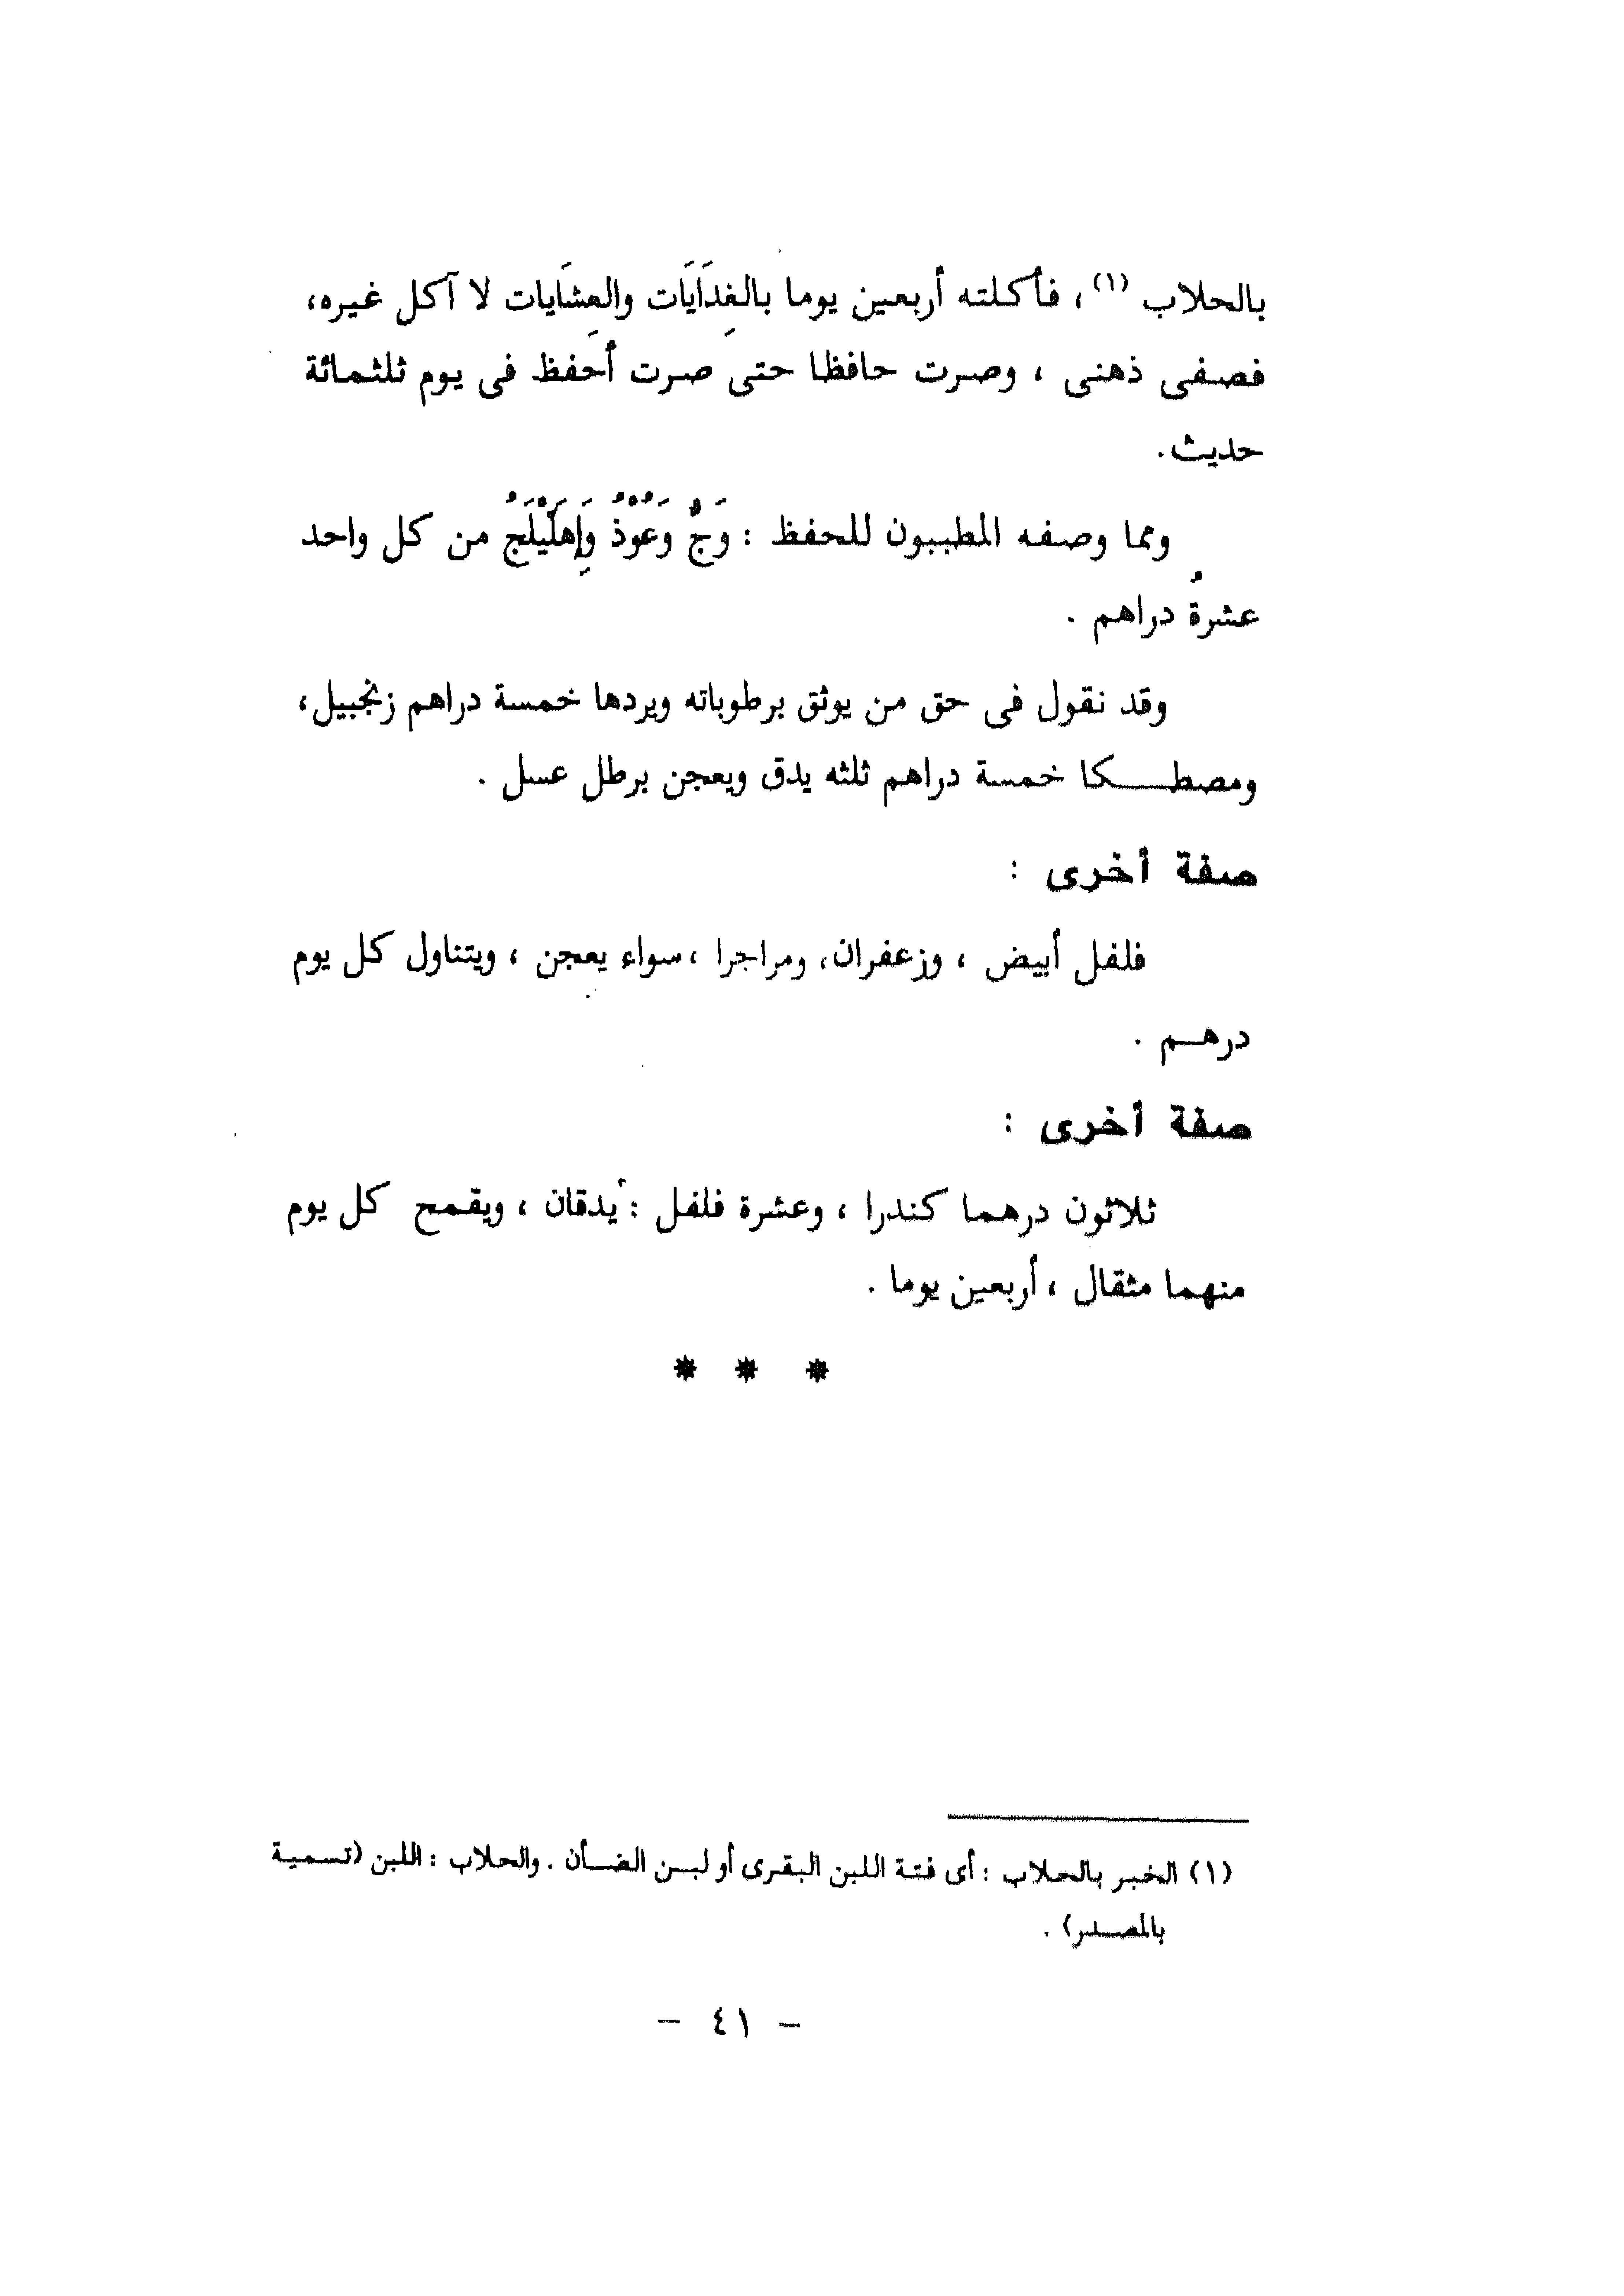 بالحلاب (١) ، فأكلته أربعين يوما بالغِدَايَات والعِشَايات لا آكل غيره،
فصفى ذهنى ، وصرت حافظا حتى صرت أَحفظ فى يوم ثلثمائة
حديث.
ومما وصفه المطببون للحفظ : وَجٌّ وَعُوْذُ وَإِهلَيْلَجُ من كل واحد
عشرةُ دراهم .
وقد نقول فى حق من يوثق برطوباته ويردها خمسة دراهم زنجبيل،
ومصطكا خمسة دراهم ثلثه يدق ويعجن برطل عسل .
صفة أخرى :
فلفل أبيض ، وزعفران، ومراجرا ، سواء يعجن ، ويتناول كل يوم
درهم .
صفة أخرى :
ثلاثون درهما كندرا ، وعشرة فلفل : يدقان ، ويقمح كل يوم
منهما مثقال ، أربعين يوما .
* * *
(١) الخبر بالحلاب : أى فتة اللبن البقرى أو لبن الضأن . والحلاب : اللبن (تسمية
بالمصدر) .
- ٤١ -